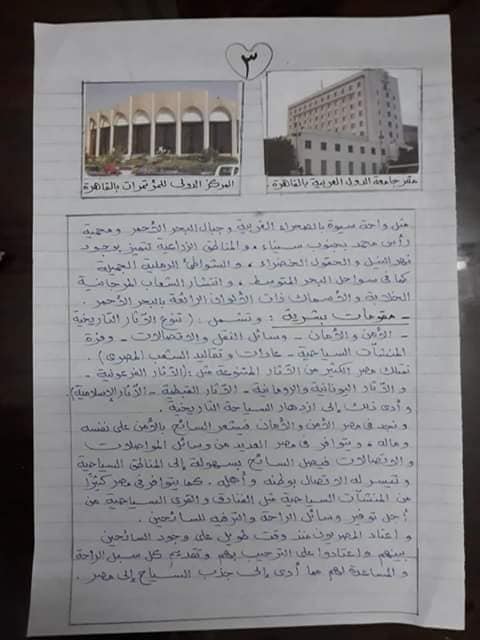 ٣
المركز الدولى للمؤتمرات بالقاهرة
مقر جامعة الدول العربية بالقاهرة.
مثل واحة سيوة بالصحراء الغربية وجبال البحر الأحمر ومحمية
رأس محمد بجنوب سيناء، والمناطق الزراعية تتميز بوجود
نهر النيل والحقول الخضراء، والشواطئ الرملية الجميلة
كما فى سواحل البحر المتوسط، وانتشار الشعاب المرجانية
الخلابة والأسماك ذات الألوان الرائعة بالبحر الأحمر.
- مقومات بشرية: وتشمل: (تنوع الآثار التاريخية
- الأمن والأمان - وسائل النقل والاتصالات - وفرة
المنشآت السياحية - عادات وتقاليد الشعب المصرى).
تمتلك مصر الكثير من الآثار المتنوعة مثل: (الآثار الفرعونية -
والآثار اليونانية والرومانية - الآثار القبطية - الآثار الإسلامية)
وأدى ذلك إلى ازدهار السياحة التاريخية.
ونجد فى مصر الأمن والأمان فيشعر السائح بالأمن على نفسه
وماله، ويتوافر فى مصر العديد من وسائل المواصلات
والاتصالات فيصل السائح بسهولة إلى المناطق السياحية
وتيسر له الاتصال بوطنه وأهله. كما يتوافر فى مصر كثيرًا
من المنشآت السياحية مثل الفنادق والقرى السياحية من
أجل توفير وسائل الراحة والترفيه للسائحين.
واعتاد المصريون منذ وقت طويل على وجود السائحين
بينهم واعتادوا على الترحيب بهم وتقديم كل سبل الراحة
والمساعدة لهم مما أدى إلى جذب السياح إلى مصر.